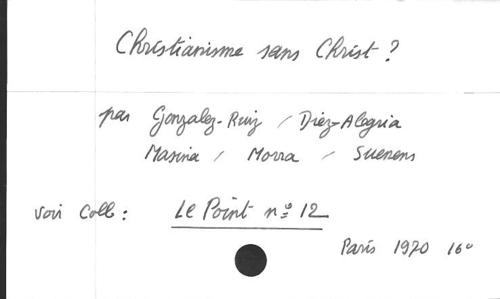 Christianisme sans Christ ?
par Gonzalez-Ruiz / Diez-Alegria
Masina / Morra / Suenens
voir Coll : Le Point nº 12
Paris 1970 16º